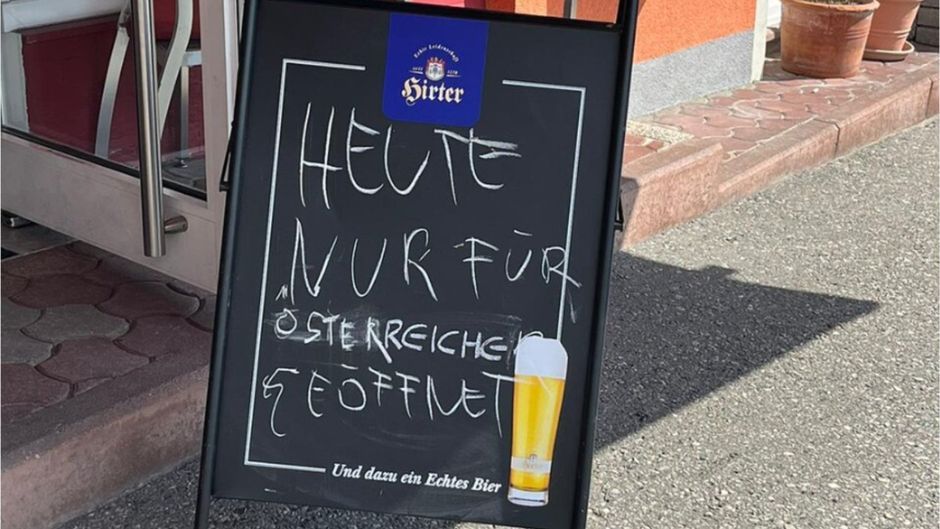 Echte Leidenschaft
SEIT 1270
Hirter
HEUTE
NUR FÜR
ÖSTERREICHER
GEÖFFNET
Und dazu ein Echtes Bier
Hirter